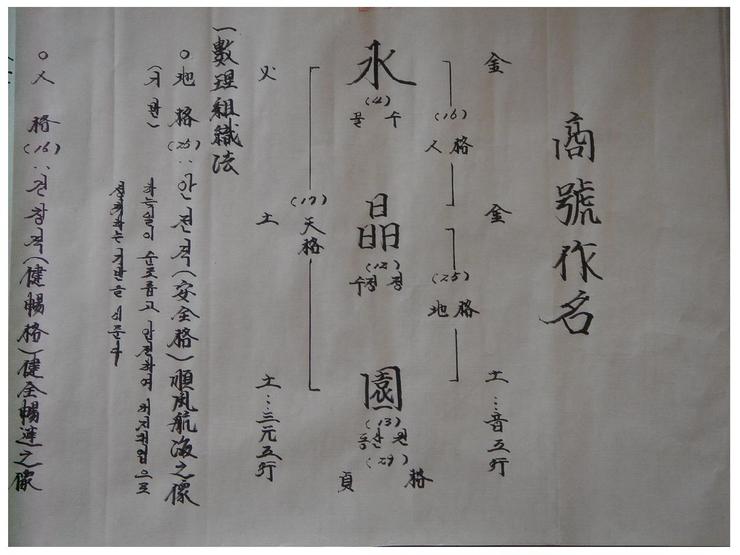 商號作名
金 金 土:音五行
(16) 人格 (25) 地格
水 (4) 물 수
晶 (12) 수정 정
園 (13) 동산 원 (29)
貞格
(17) 天格
火 土 土:三元五行
一數理組織法
○地格(25):안전격(安全格)順風航海之像
(기반) 하는일이 순조롭고 안전하여
하는 기반을
○人格(16):건창격(健暢格)健全暢達之像